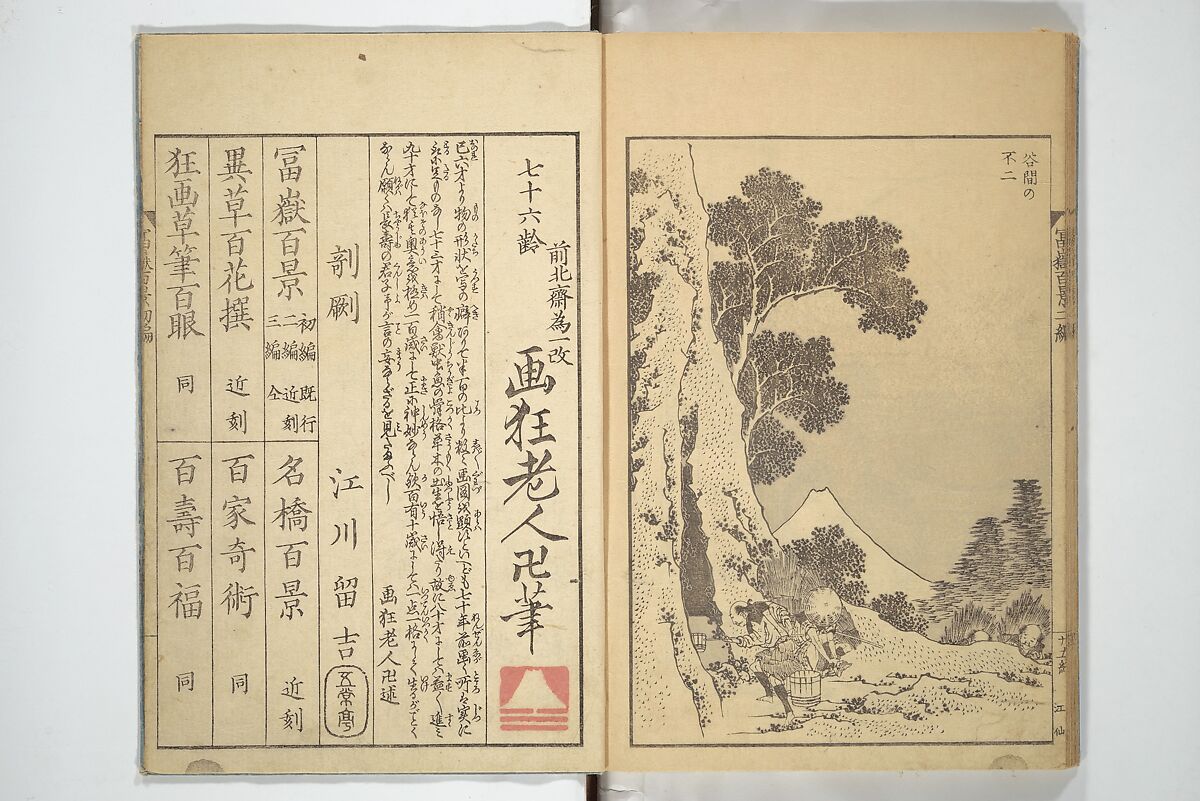 谷間の
不二
冨嶽百景二編
廿五終
江仙
七十六齢
前北斎為一改
画狂老人卍筆
己六才より物の形状を写の癖ありて半百の比より数々画図を顕すといへども七十年前画く所は実に
取に足ものなし七十三才にして稍禽獣虫魚の骨格草木の出生を悟し得たり故に八十才にしては益々進み
九十才にして猶其奥意を極め一百歳にして正に神妙ならん歟百有十歳にしては一点一格にして生るがごとく
ならん願くは長寿の君子予が言の妄ならざるを見たまふべし
画狂老人卍述
剞劂
江川留吉
五常亭
冨嶽百景
初編 既行
二編 近刻
三編 仝
名橋百景 近刻
異草百花撰 近刻
百家奇術 同
狂画草筆百眼 同
百壽百福 同